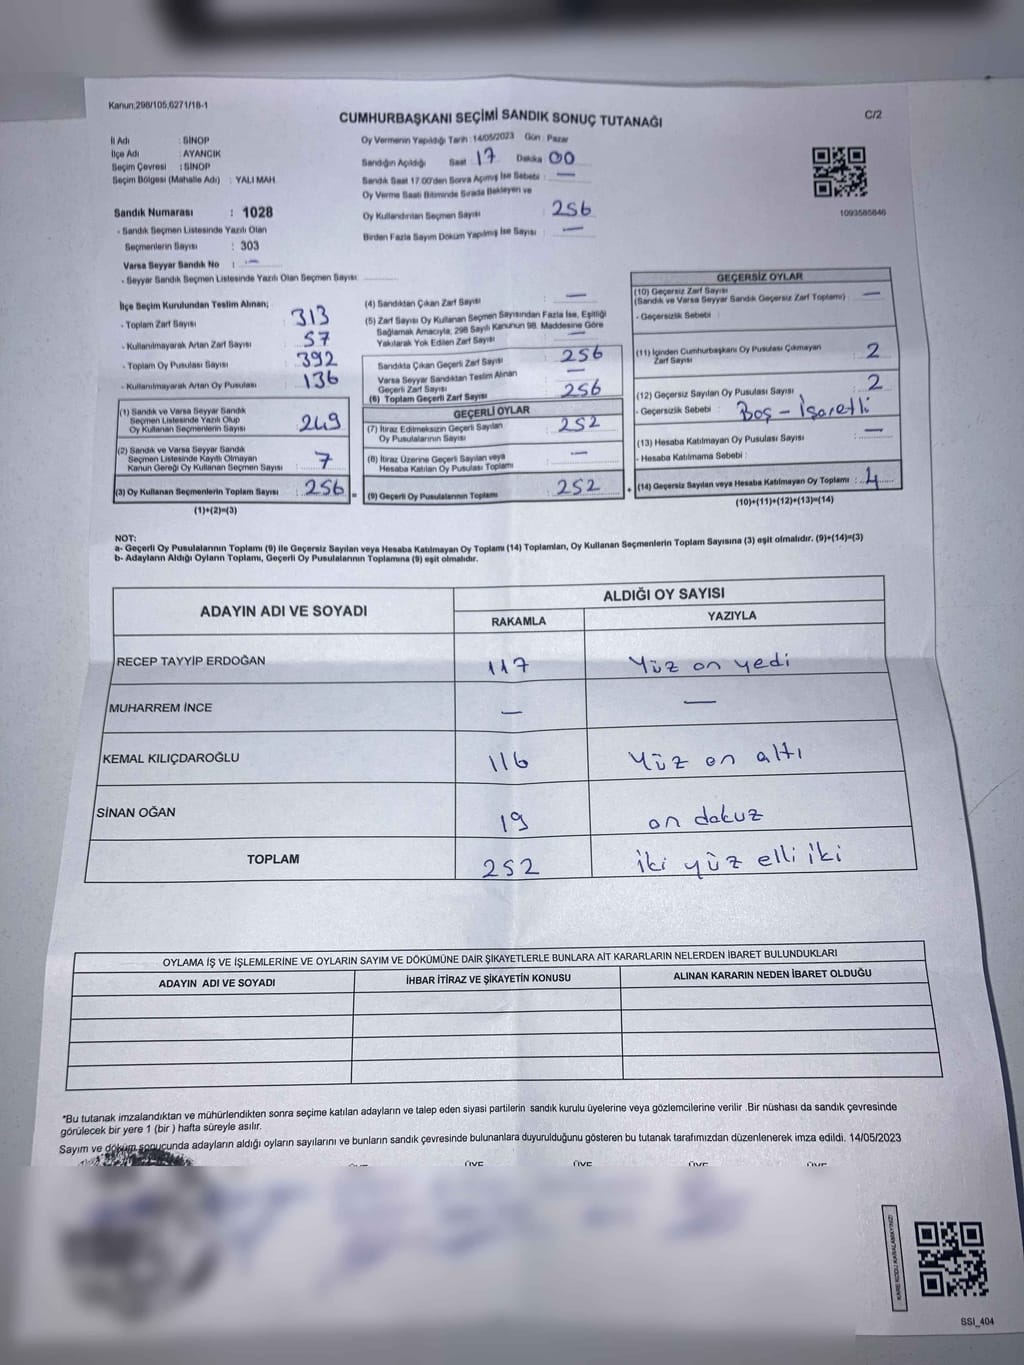 Kanun;298/105,6271/18-1
CUMHURBAŞKANI SEÇİMİ SANDIK SONUÇ TUTANAĞI
C/2
İl Adı : SİNOP
İlçe Adı : AYANCIK
Seçim Çevresi : SİNOP
Seçim Bölgesi (Mahalle Adı) : YALI MAH.
Sandık Numarası : 1028
- Sandık Seçmen Listesinde Yazılı Olan
Seçmenlerin Sayısı : 303
Varsa Seyyar Sandık No : —
- Seyyar Sandık Seçmen Listesinde Yazılı Olan Seçmen Sayısı:
Oy Vermenin Yapıldığı Tarih : 14/05/2023 Gün : Pazar
Sandığın Açıldığı Saat : 17 Dakika : 00
Sandık Saat 17.00'den Sonra Açımış İse Sebebi : —
Oy Verme Saati Bitiminde Sırada Bekleyen ve
Oy Kullandırılan Seçmen Sayısı : 256
Birden Fazla Sayım Döküm Yapılmış İse Sayısı : —
1093585846
İlçe Seçim Kurulundan Teslim Alınan;
- Toplam Zarf Sayısı : 313
- Kullanılmayarak Artan Zarf Sayısı : 57
- Toplam Oy Pusulası Sayısı : 392
- Kullanılmayarak Artan Oy Pusulası : 136
(1) Sandık ve Varsa Seyyar Sandık
Seçmen Listesinde Yazılı Olup
Oy Kullanan Seçmenlerin Sayısı : 249
(2) Sandık ve Varsa Seyyar Sandık
Seçmen Listesinde Kayıtlı Olmayan
Kanun Gereği Oy Kullanan Seçmen Sayısı : 7
(3) Oy Kullanan Seçmenlerin Toplam Sayısı : 256 =
(1)+(2)=(3)
(4) Sandıktan Çıkan Zarf Sayısı : —
(5) Zarf Sayısı Oy Kullanan Seçmen Sayısından Fazla İse, Eşitliği
Sağlamak Amacıyla, 298 Sayılı Kanunun 98. Maddesine Göre
Yakılarak Yok Edilen Zarf Sayısı : —
Sandıkta Çıkan Geçerli Zarf Sayısı : 256
Varsa Seyyar Sandıktan Teslim Alınan
Geçerli Zarf Sayısı : —
(6) Toplam Geçerli Zarf Sayısı : 256
GEÇERLİ OYLAR
(7) İtiraz Edilmeksizin Geçerli Sayılan
Oy Pusulalarının Sayısı : 252
(8) İtiraz Üzerine Geçerli Sayılan veya
Hesaba Katılan Oy Pusulası Toplamı : —
(9) Geçerli Oy Pusulalarının Toplamı : 252 +
GEÇERSİZ OYLAR
(10) Geçersiz Zarf Sayısı
(Sandık ve Varsa Seyyar Sandık Geçersiz Zarf Toplamı) : —
- Geçersizlik Sebebi :
(11) İçinden Cumhurbaşkanı Oy Pusulası Çıkmayan
Zarf Sayısı : 2
(12) Geçersiz Sayılan Oy Pusulası Sayısı : 2
- Geçersizlik Sebebi : Boş - İşaretli
(13) Hesaba Katılmayan Oy Pusulası Sayısı : —
- Hesaba Katılmama Sebebi :
(14) Geçersiz Sayılan veya Hesaba Katılmayan Oy Toplamı : 4
(10)+(11)+(12)+(13)=(14)
NOT:
a- Geçerli Oy Pusulalarının Toplamı (9) ile Geçersiz Sayılan veya Hesaba Katılmayan Oy Toplamı (14) Toplamları, Oy Kullanan Seçmenlerin Toplam Sayısına (3) eşit olmalıdır. (9)+(14)=(3)
b- Adayların Aldığı Oyların Toplamı, Geçerli Oy Pusulalarının Toplamına (9) eşit olmalıdır.
ADAYIN ADI VE SOYADI
ALDIĞI OY SAYISI
RAKAMLA YAZIYLA
RECEP TAYYİP ERDOĞAN 117 Yüz on yedi
MUHARREM İNCE — —
KEMAL KILIÇDAROĞLU 116 Yüz on altı
SİNAN OĞAN 19 on dokuz
TOPLAM 252 iki yüz elli iki
OYLAMA İŞ VE İŞLEMLERİNE VE OYLARIN SAYIM VE DÖKÜMÜNE DAİR ŞİKAYETLERLE BUNLARA AİT KARARLARIN NELERDEN İBARET BULUNDUKLARI
ADAYIN ADI VE SOYADI İHBAR İTİRAZ VE ŞİKAYETİN KONUSU ALINAN KARARIN NEDEN İBARET OLDUĞU
*Bu tutanak imzalandıktan ve mühürlendikten sonra seçime katılan adayların ve talep eden siyasi partilerin sandık kurulu üyelerine veya gözlemcilerine verilir .Bir nüshası da sandık çevresinde
görülecek bir yere 1 (bir ) hafta süreyle asılır.
Sayım ve döküm sonucunda adayların aldığı oyların sayılarını ve bunların sandık çevresinde bulunanlara duyurulduğunu gösteren bu tutanak tarafımızdan düzenlenerek imza edildi. 14/05/2023
ÜYE ÜYE ÜYE ÜYE
KARE KODU KARALAMAYINIZ!
SSI_404